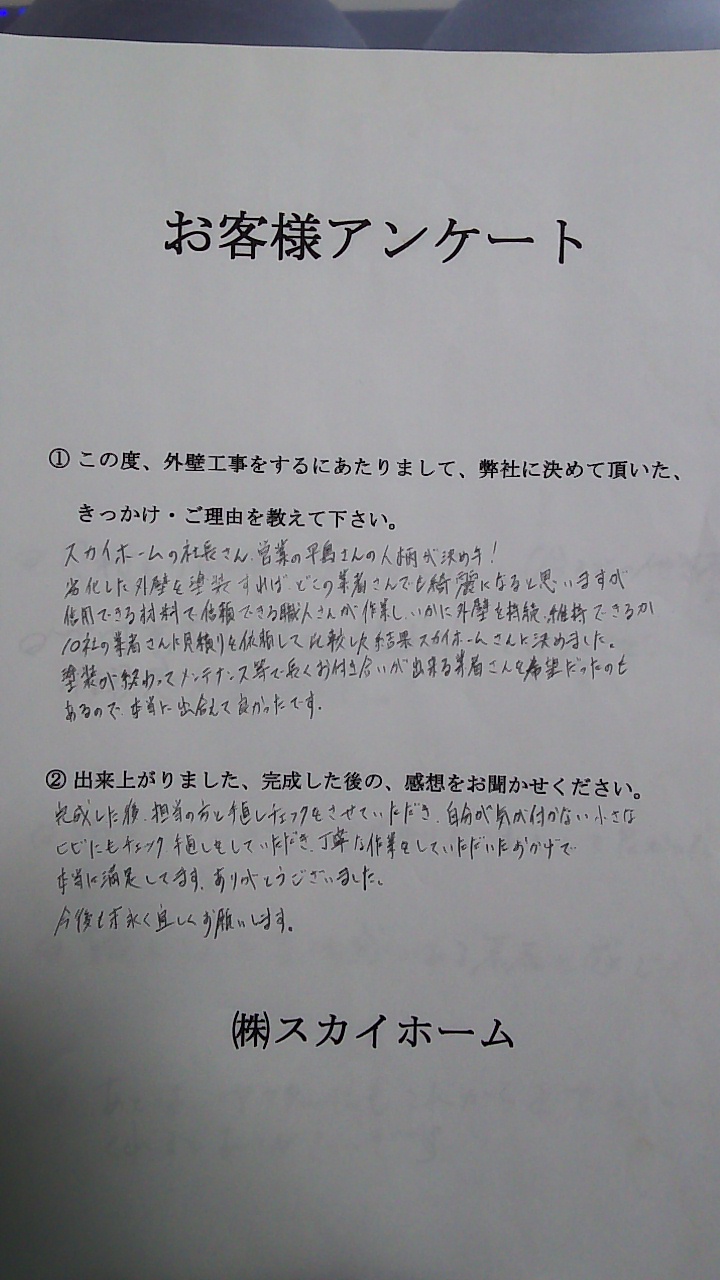 お客様アンケート
① この度、外壁工事をするにあたりまして、弊社に決めて頂いた、
きっかけ・ご理由を教えて下さい。
スカイホームの社長さん、営業の平島さんの人柄が決め手!
劣化した外壁を塗装すれば、どこの業者さんでも綺麗になると思いますが
信用できる材料で、信頼できる職人さんが作業し、いかに外壁を持続、維持できるか
10社の業者さんに見積りを依頼して比較した結果スカイホームさんに決めました。
塗装が終わってメンテナンス等で長くお付き合いが出来る業者さんを希望だったのも
あるので、本当に出会えて良かったです。
② 出来上がりました、完成した後の、感想をお聞かせください。
完成した後、担当の方と手直しチェックをさせていただき、自分が気が付かない小さな
ヒビにもチェック手直しをしていただき、丁寧な作業をしていただいたおかげで
本当に満足してます。ありがとうございました。
今後も末永く宜しくお願いします。
㈱スカイホーム